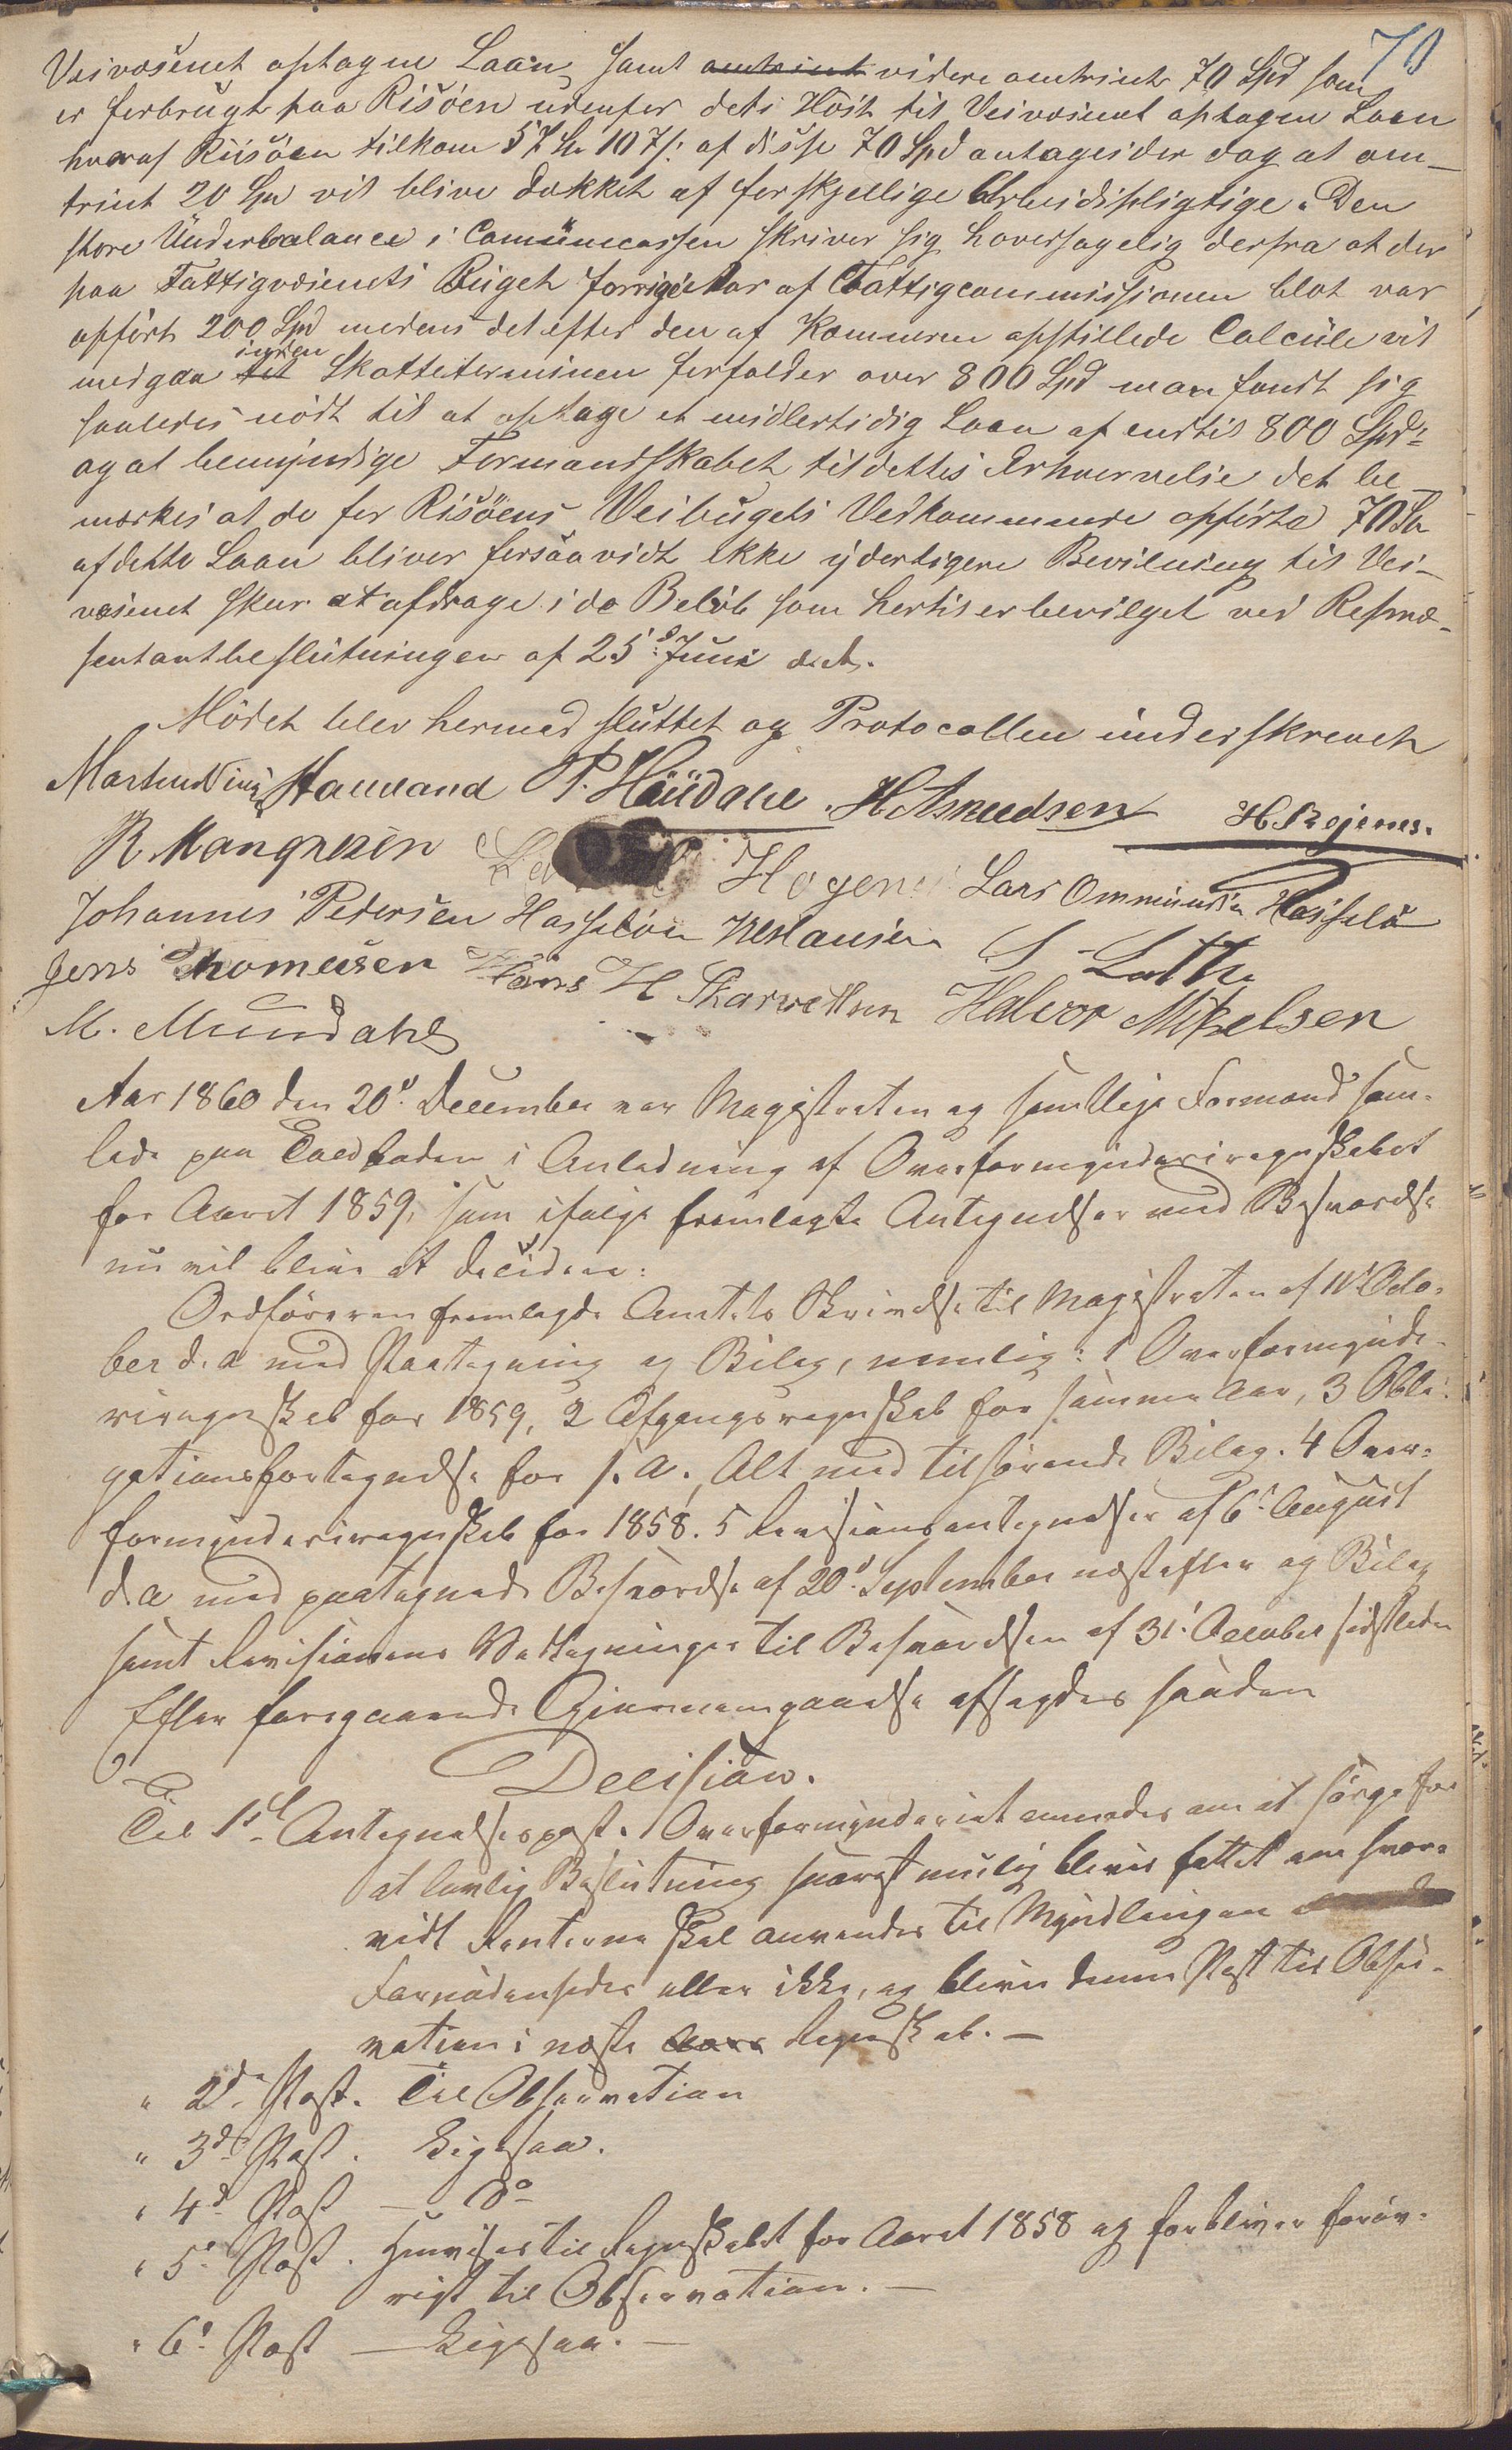 70
Veivæsenet optagne Laan, samt omtrint videre omtrint 70 Spd som
er forbrugt paa Risøen udenfor dets Høst til Veivæsenet optagen Laan
hvoraf Riisøen tilkom 57 Sp 107 s: af disse 70 Spd antages der dog at om-
trint 20 Spd vil blive dækket af forskjellige Arbeidspligtige. Den
store Underbalance i Comünecassen skriver sig hovedsagelig derfra at der
paa Fattigvæsenets Buget forrige Aar af Fattigcommissionen blot var
opført 200 Spd medens det efter den af Kæmneren opstillede Calcüle vil
medgaa til inden Skatteterminen forfalder over 800 Spd man fandt sig
saaledes nødt til at optage et midlertidig Laan af indtil 800 Spd:
og at bemyndige Formandskabet til dettes Erhvervelse det be-
mærkes at de for Risøens Veibugets Vedkommende opførte 70 Sp
af dette Laan bliver forsaavidt ikke yderligere Bevilning til Vei-
væsenet sker at afdrage i de Beløb som hertil er bevilget ved Repræ-
sentantbeslutningen af 25d: Juni d.A.
Mødet blev hermed sluttet og Protocollen underskrevet
Martin Haaland P. Haüdahl. H Asmundsen H. Bojesen.
R. Mangnesen Hogens Lars Ommundsen Hasseløe
Johannes Pedersen Hasseløen Hansen S. Loth
Jens Thomesen Hans H Skarvettnen Halvor Mikelsen
M. Mundahl
Aar 1860 den 20d. December var Magistraten og samtlige Formænd sam-
lede paa Toldboden i Anledning af Overformynderiregnskabet
for Aaret 1859, som ifølge fremlagte Antegnelser med Besvarelse
nu vil blive at decidere:
Ordføreren fremlagde Amtets Skrivelse til Magistraten af 10 Octo-
ber d. A. med Paategning og Bilag, nemlig: 1 Overformynde-
riregnskab for 1859, 2 Afgangsregnskab for samme Aar, 3 Obli-
gationsfortegnelse for s. A., Alt med tilhørende Bilag. 4 Over-
formynderiregnskab for 1858. 5 Revisionsantegnelser af 6te August
d. A med paategnede Besvarelse af 20d. September næstefter og Bilag
samt Revisionens Vedtegninger til Besvarelsen af 31. October sidstleden
Efter foregaaende Gjennemgaaelse afsagdes saadan
Decision.
Til 1ste Antegnelsespost. Overformynderiet anmodes om at sørge for
at lovlig Beslutning snarest mulig bliver fattet om hvor-
vidt Renterne skal anvendes til Myndlingen
Fornødenheder eller ikke, og bliver denne Post til Obser-
vation i næste Aars Regnskab. —
" 2de Post. Til Observation
" 3de Post. Ligesaa.
" 4de Post — Do
" 5te Post. Henvises til Regnskabet for Aaret 1858 og forbliver forøv-
rigt til Observation. —
" 6te Post — Ligesaa. —